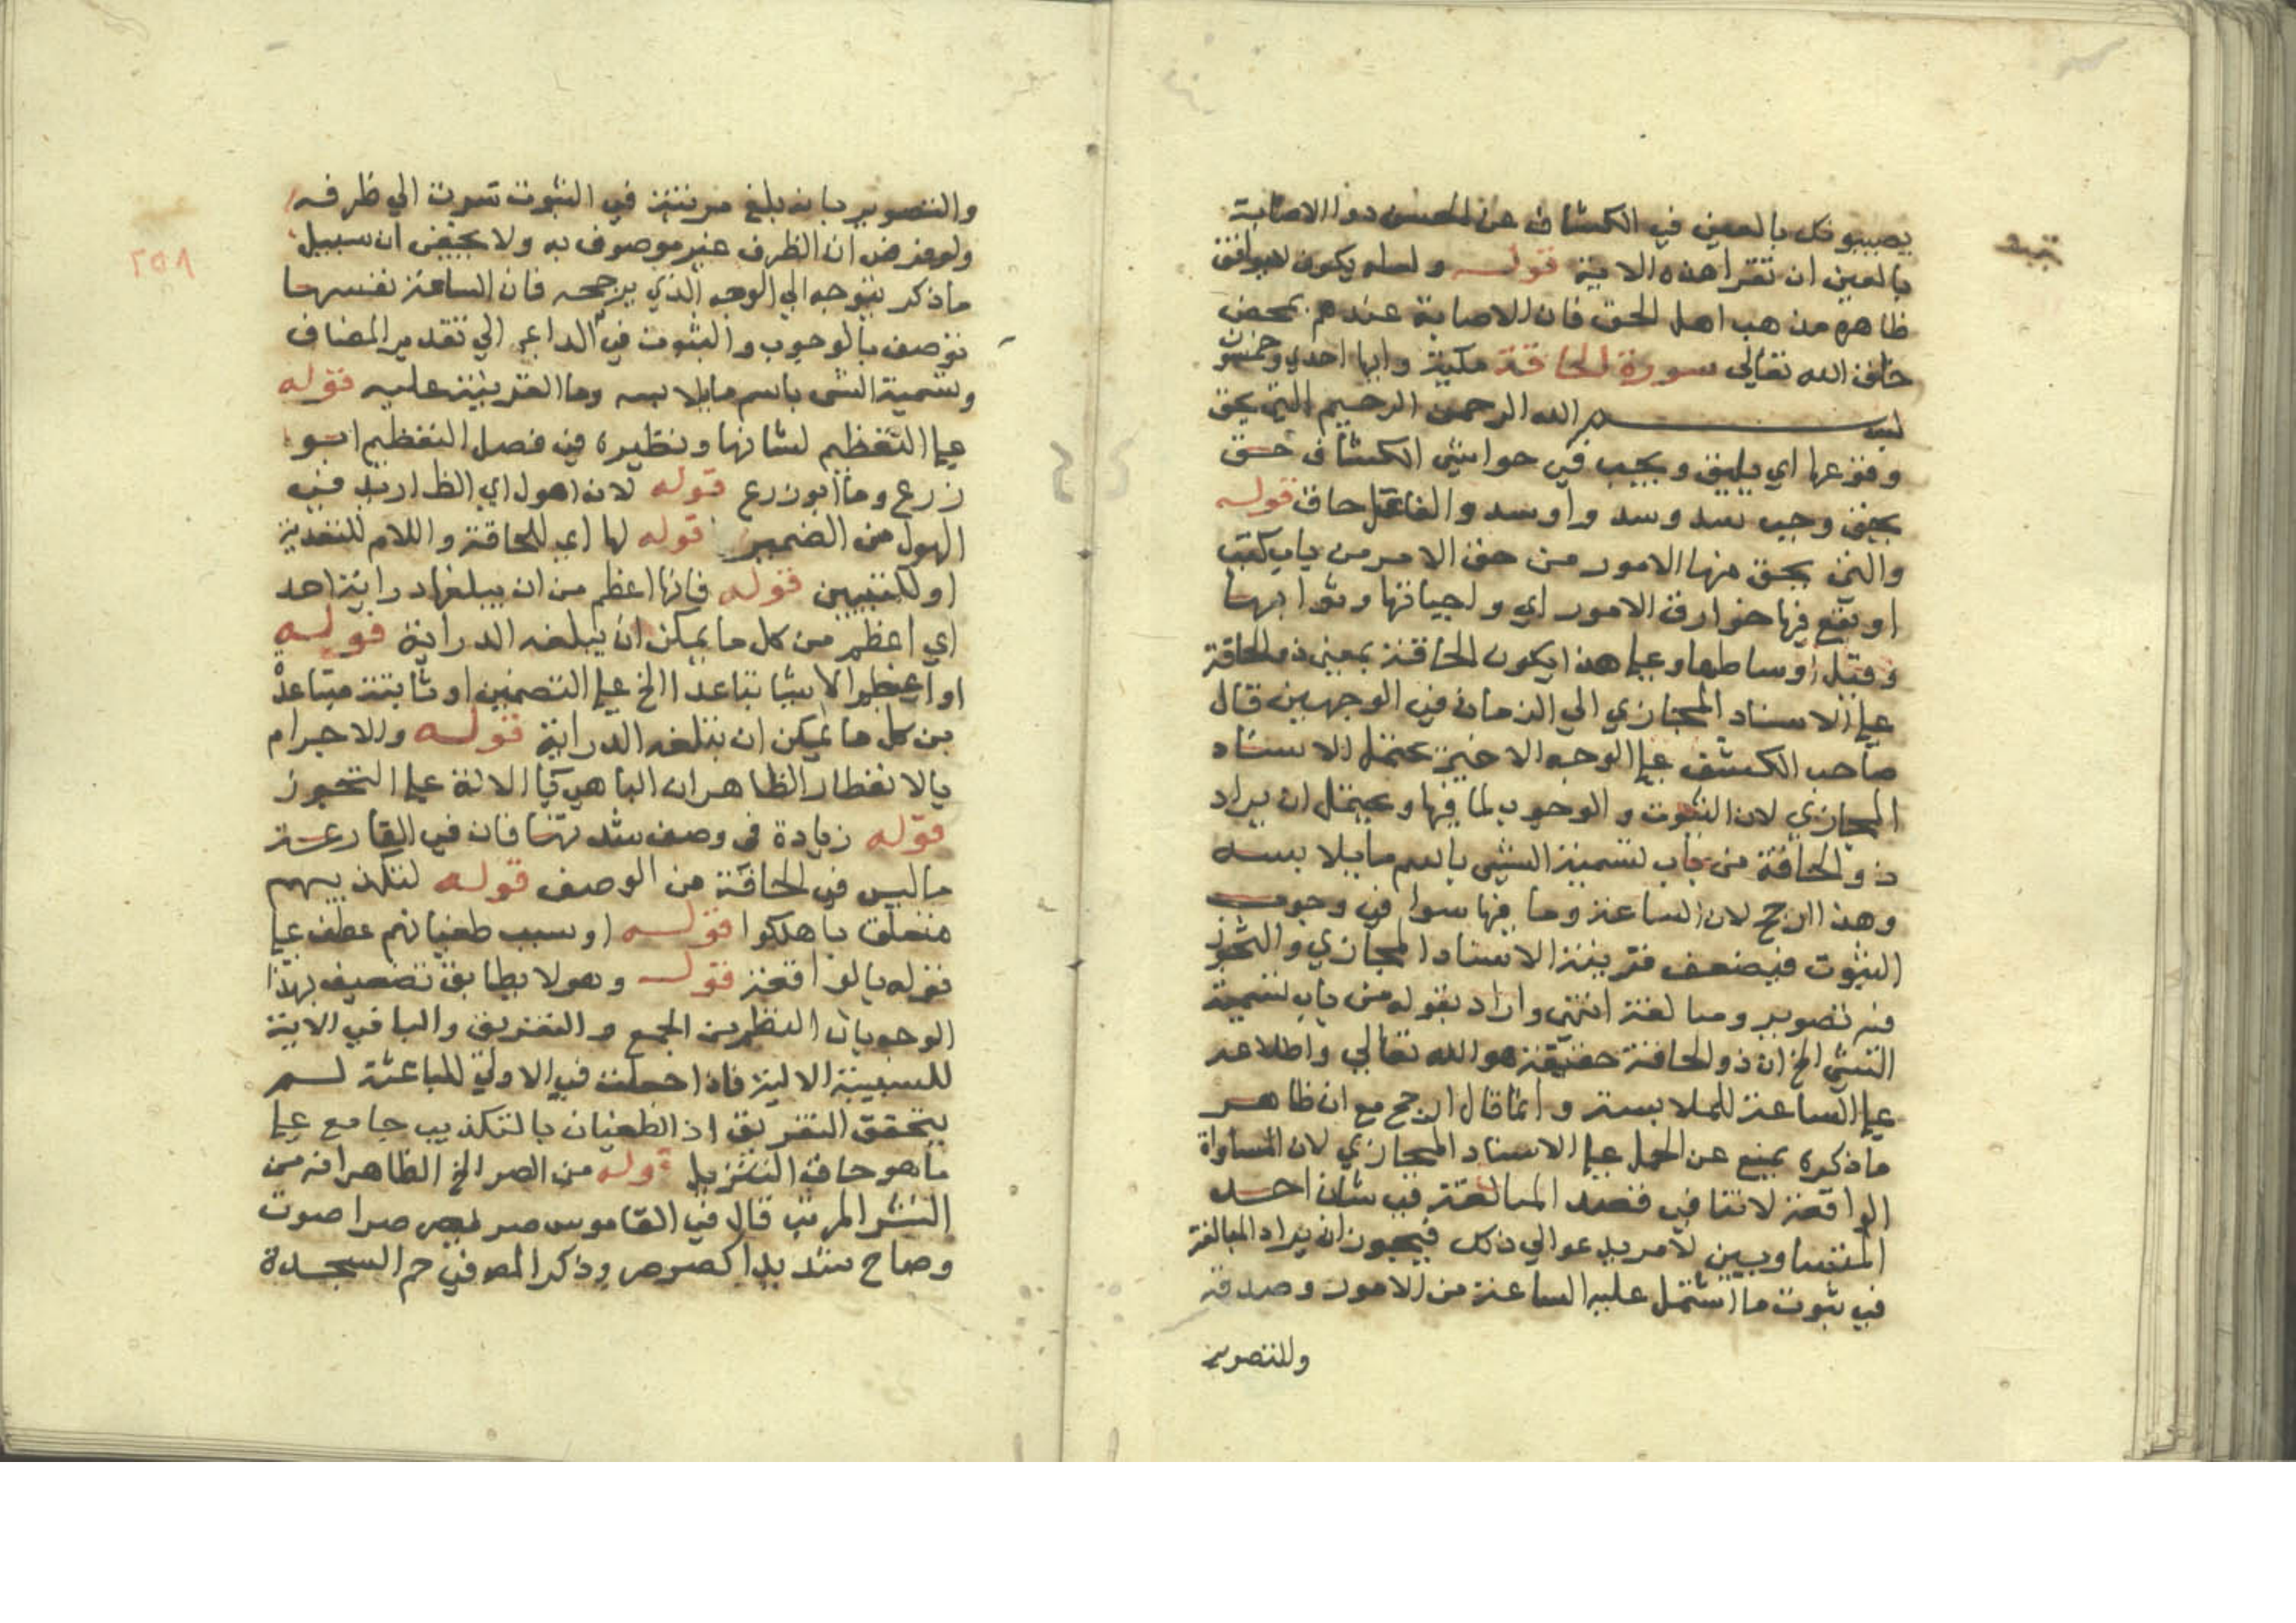 يصيبونك بالعين في الكشاف عن الحسن دوا الاصابة
بالعين ان تقرا هذه الاية قوله ولعله يكون
ظاهره مذهب اهل الحق فان الاصابة عندهم بمحض
خلق الله تعالى سورة الحاقة مكية وايها احدي وخمسون
بسم الله الرحمن الرحيم التي يحق
وقوعها اي يليق ويجب في حواشي الكشاف حق
يحق وجب يسد وسد واوسد والفاعل حاق قوله
والتي يحق فيها الامور من حق الامر من باب كتب
او تقع فيها حوارق الامور اي واجباتها وثوابتها
وقيل اوساطها وعلي هذا يكون الحاقة بمعني ذو الحاقة
علي الاسناد المجازي الي الزمان في الوجهين قال
صاحب الكشف علي الوجه الاخير يحتمل الاسناد
المجازي لان الثبوت والوجوب لما فيها ويحتمل ان يراد
ذو الحاقة من باب تسمية الشي باسم ما يلابسه
وهذا ارجح لان الساعة وما فيها سوا في وجوب
الثبوت فيضعف قرينة الاسناد المجازي والتجوز
فيه تصوير ومبالغة انتهي واراد بقوله من باب تسمية
الشي الخ ان ذو الحاقة حقيقة هو الله تعالي واطلاعه
علي الساعة للملابسة وانما قال ارجح مع ان ظاهر
ما ذكره يمنع عن الحمل علي الاسناد المجازي لان المساواة
الواقعة لاتنافي قصد المبالغة في شان احد
المتساويين لامر يدعو الي ذلك فيجوز ان يراد المبالغة
في ثبوت ما اشتمل عليه الساعة من الامور وصدقه
وللتصوير
والتصوير بانه بلغ مرتبته في الثبوت تسوت الي ظرفه
ولو فرض ان الظرف غير موصوف به ولا يخفي ان سبيل
ما ذكر يتوجه الي الوجه الذي يرجحه فان الساعة نفسها
توصف بالوجوب والثبوت في الداعي الي تقدير المضاف
وتسمية الشي باسم ما يلابسه وما القرينة عليه قوله
علي التعظيم لشانها ونظيره في فصل التعظيم ابو
زرع وما ابو زرع قوله لان اهول اي الظ اريد فيه
الهول من الضمير قوله لها اي للحاقة واللام للتعدية
او للتبيين قوله فانها اعظم من ان يبلغها دراية احد
اي اعظم من كل ما يمكن ان يبلغه الدراية قوله
او اعظم الاشيا تباعدا الخ علي التضمين او ثابتة متباعدة
من كل ما يمكن ان يبلغه الدراية قوله والاجرام
بالانفطار الظاهر ان البا هي باالالة علي التجوز
قوله زيادة في وصف شدتها فان في القارعة
ما ليس في الحاقة من الوصف قوله لتكذيبهم
متعلق باهلكوا قوله او سبب طغيانهم عطف علي
قوله بالواقعة قوله وهو لا يطابق تضعيف لهذا
الوجه بان النظم من الجمع والتفريق والبا في الاية
للسببية الالية فاذا جعلت في الاولي للباعثة لم
يتحقق التفريق اذ الطغيان بالتكذيب جامع علي
ما هو حاق التنزيل قوله من الصر الخ الظاهر انه من
النشر المرتب قال في القاموس صر يصر صرا صوت
وصاح شديدا كصرصر وذكر المص في حم السجدة
٢٥٨